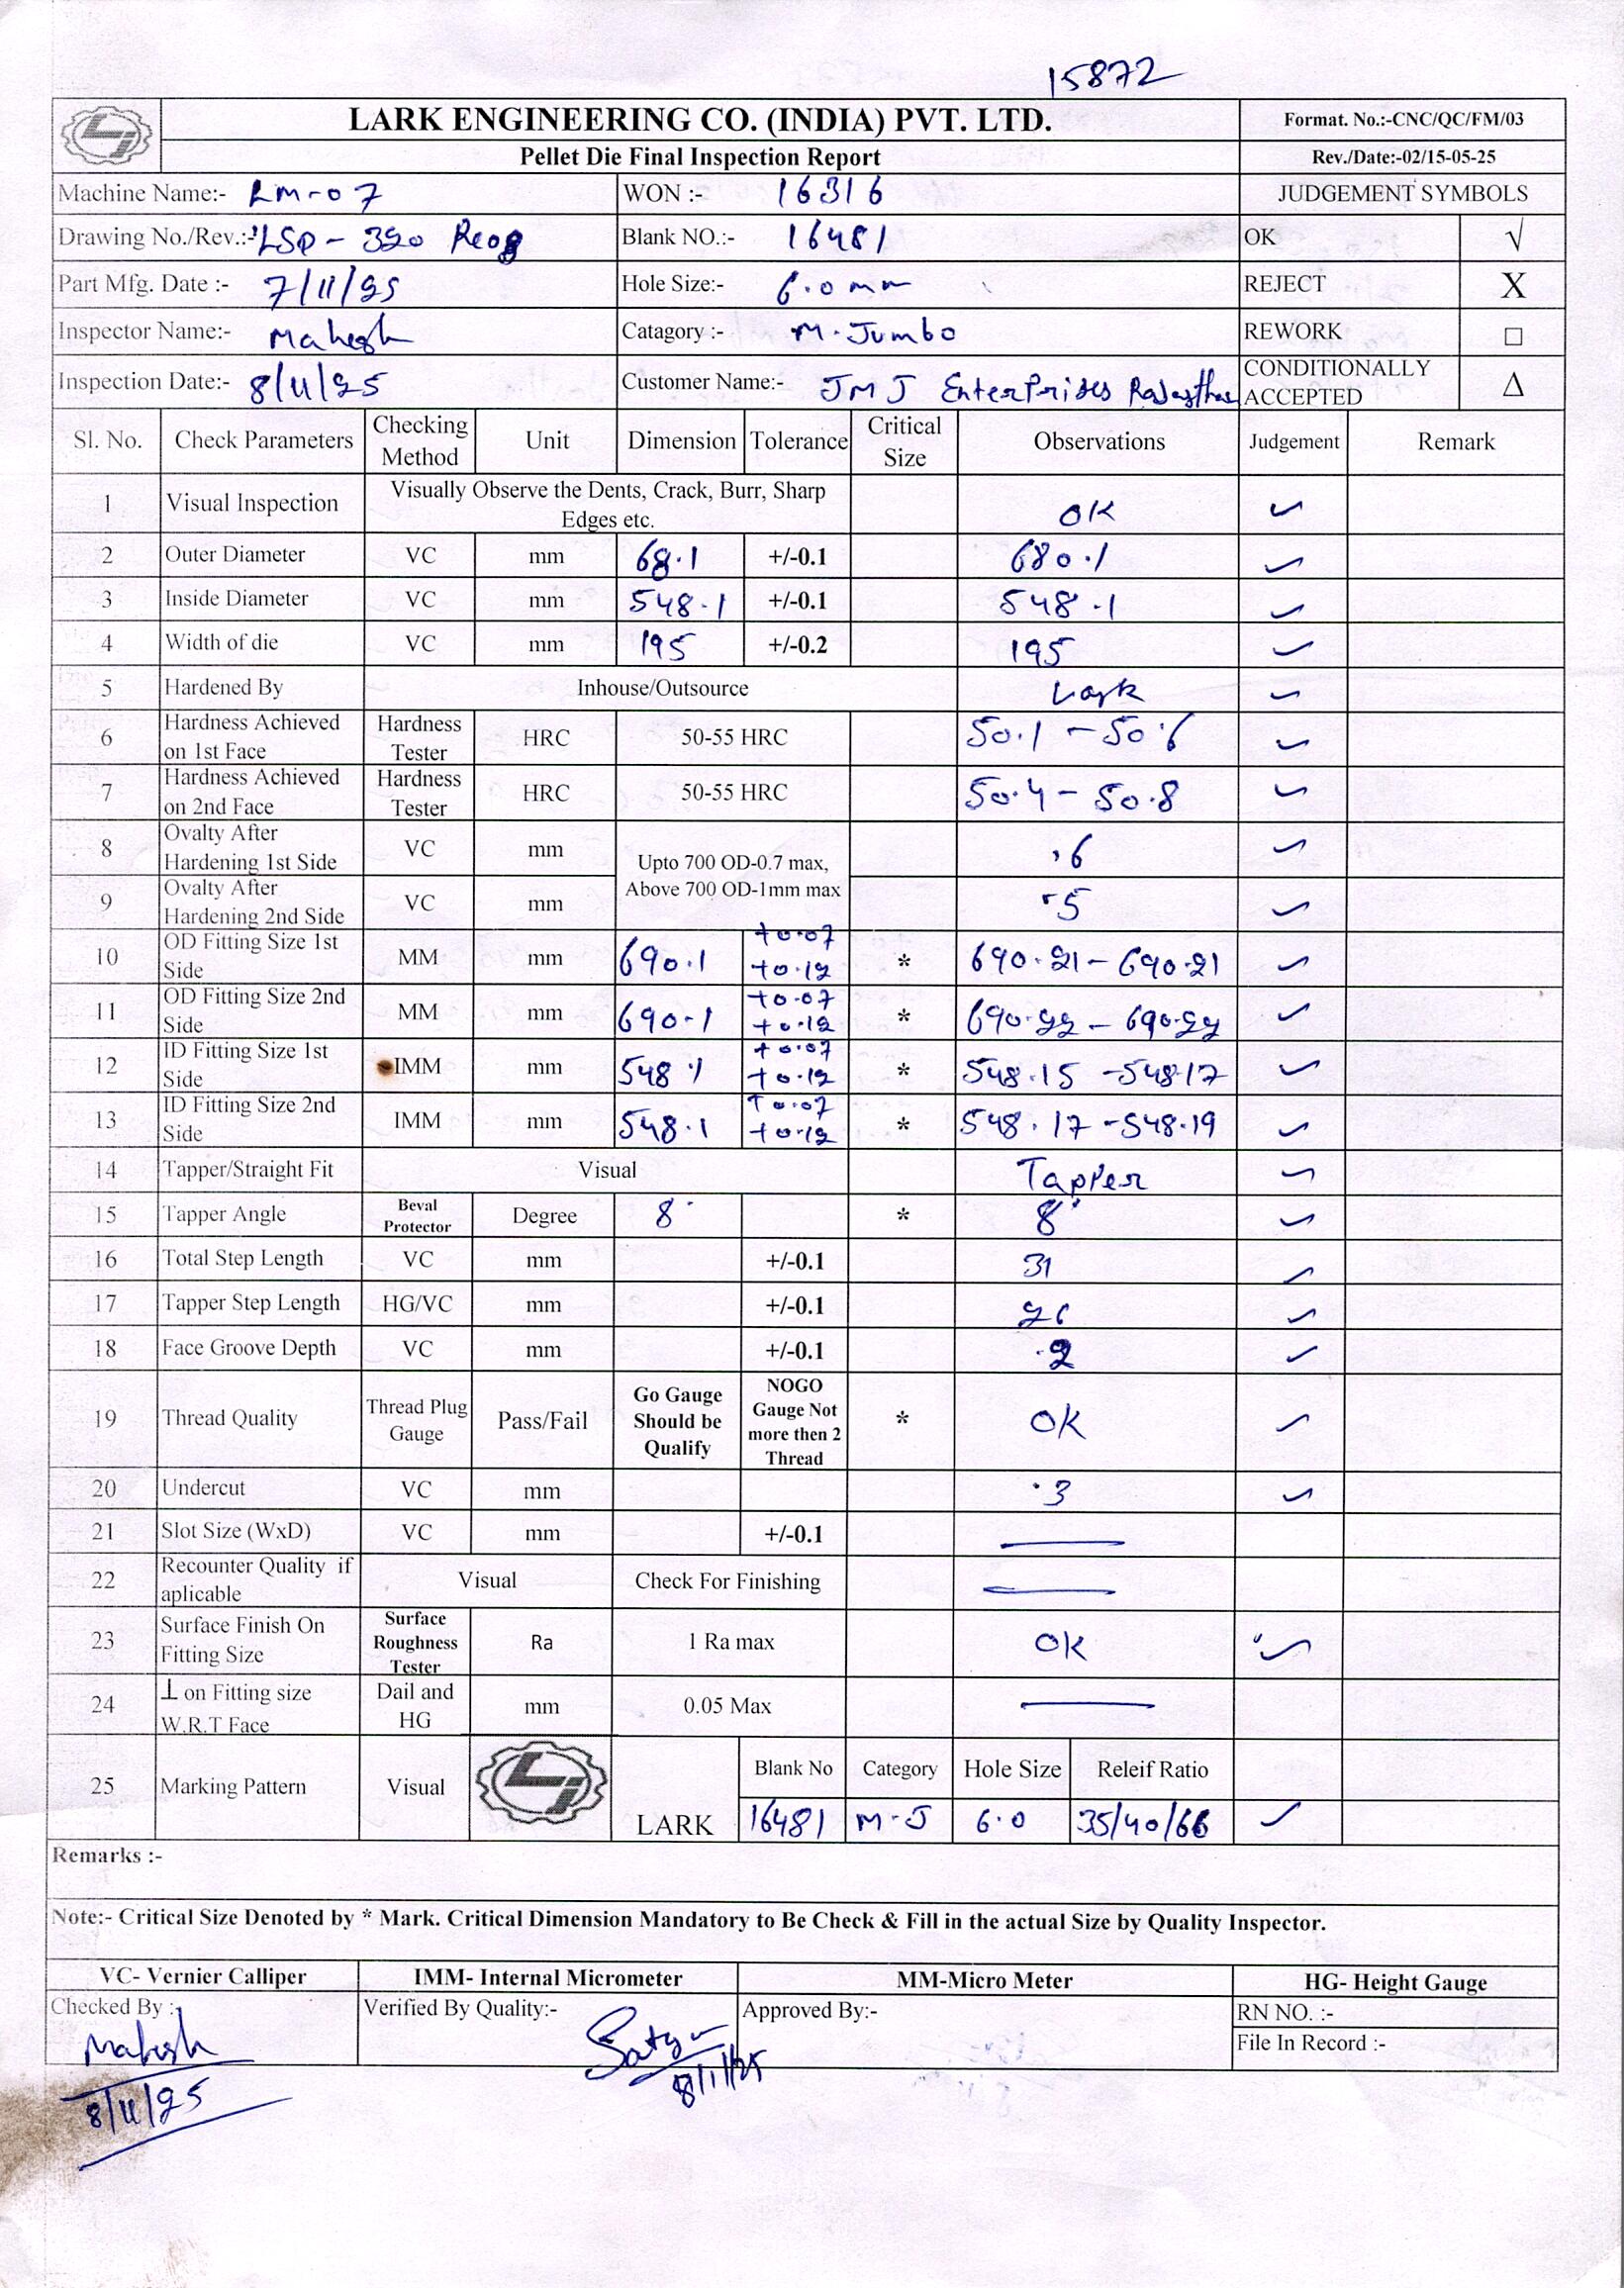 15872
LARK ENGINEERING CO. (INDIA) PVT. LTD.
Format. No.:-CNC/QC/FM/03
Pellet Die Final Inspection Report
Rev./Date:-02/15-05-25
Machine Name:- LM-07 WON :- 16316 JUDGEMENT SYMBOLS
Drawing No./Rev.:- LSP-320 Blank NO.:- 16481 OK √
Part Mfg. Date :- 7/11/25 Hole Size:- 6.0 mm REJECT X
Inspector Name:- Mahesh Catagory :- M-Jumbo REWORK □
Inspection Date:- 8/11/25 Customer Name:- JMJ EnterPrises Rajasthan CONDITIONALLY ACCEPTED Δ
Sl. No. Check Parameters Checking Method Unit Dimension Tolerance Critical Size Observations Judgement Remark
1 Visual Inspection Visually Observe the Dents, Crack, Burr, Sharp Edges etc. OK ✓
2 Outer Diameter VC mm 68.1 +/-0.1 680.1 ✓
3 Inside Diameter VC mm 548.1 +/-0.1 548.1 ✓
4 Width of die VC mm 195 +/-0.2 195 ✓
5 Hardened By Inhouse/Outsource Lark ✓
6 Hardness Achieved on 1st Face Hardness Tester HRC 50-55 HRC 50.1 - 50.6 ✓
7 Hardness Achieved on 2nd Face Hardness Tester HRC 50-55 HRC 50.4 - 50.8 ✓
8 Ovalty After Hardening 1st Side VC mm Upto 700 OD-0.7 max, Above 700 OD-1mm max .6 ✓
9 Ovalty After Hardening 2nd Side VC mm .5 ✓
10 OD Fitting Size 1st Side MM mm 690.1 +0.07 +0.12 * 690.21 - 690.21 ✓
11 OD Fitting Size 2nd Side MM mm 690.1 +0.07 +0.12 * 690.22 - 690.22 ✓
12 ID Fitting Size 1st Side IMM mm 548.1 +0.07 +0.12 * 548.15 - 548.17 ✓
13 ID Fitting Size 2nd Side IMM mm 548.1 +0.07 +0.12 * 548.17 - 548.19 ✓
14 Tapper/Straight Fit Visual Tapper ✓
15 Tapper Angle Beval Protector Degree 8° * 8° ✓
16 Total Step Length VC mm +/-0.1 31 ✓
17 Tapper Step Length HG/VC mm +/-0.1 26 ✓
18 Face Groove Depth VC mm +/-0.1 .2 ✓
19 Thread Quality Thread Plug Gauge Pass/Fail Go Gauge Should be Qualify NOGO Gauge Not more then 2 Thread * OK ✓
20 Undercut VC mm .3 ✓
21 Slot Size (WxD) VC mm +/-0.1 —
22 Recounter Quality if aplicable Visual Check For Finishing —
23 Surface Finish On Fitting Size Surface Roughness Tester Ra 1 Ra max OK ✓
24 ⊥ on Fitting size W.R.T Face Dail and HG mm 0.05 Max —
25 Marking Pattern Visual LARK Blank No Category Hole Size Releif Ratio
16481 M-J 6.0 35/40/66 ✓
Remarks :-
Note:- Critical Size Denoted by * Mark. Critical Dimension Mandatory to Be Check & Fill in the actual Size by Quality Inspector.
VC- Vernier Calliper IMM- Internal Micrometer MM-Micro Meter HG- Height Gauge
Checked By :- Verified By Quality:- Approved By:- RN NO. :-
File In Record :-
Mahesh
8/11/25
8/11/25